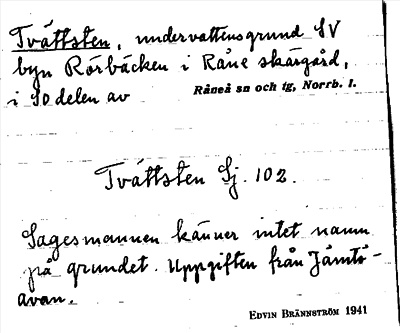 Tvättsten, undervattensgrund SV
byn Rörbäcken i Råne skärgård,
i SO delen av Råneå sn och tg, Norrb. l.
Tvättsten Sj. 102.
Sagesmannen känner intet namn
på grundet. Uppgiften från Jämtö-
avan.
EDVIN BRÄNNSTRÖM 1941